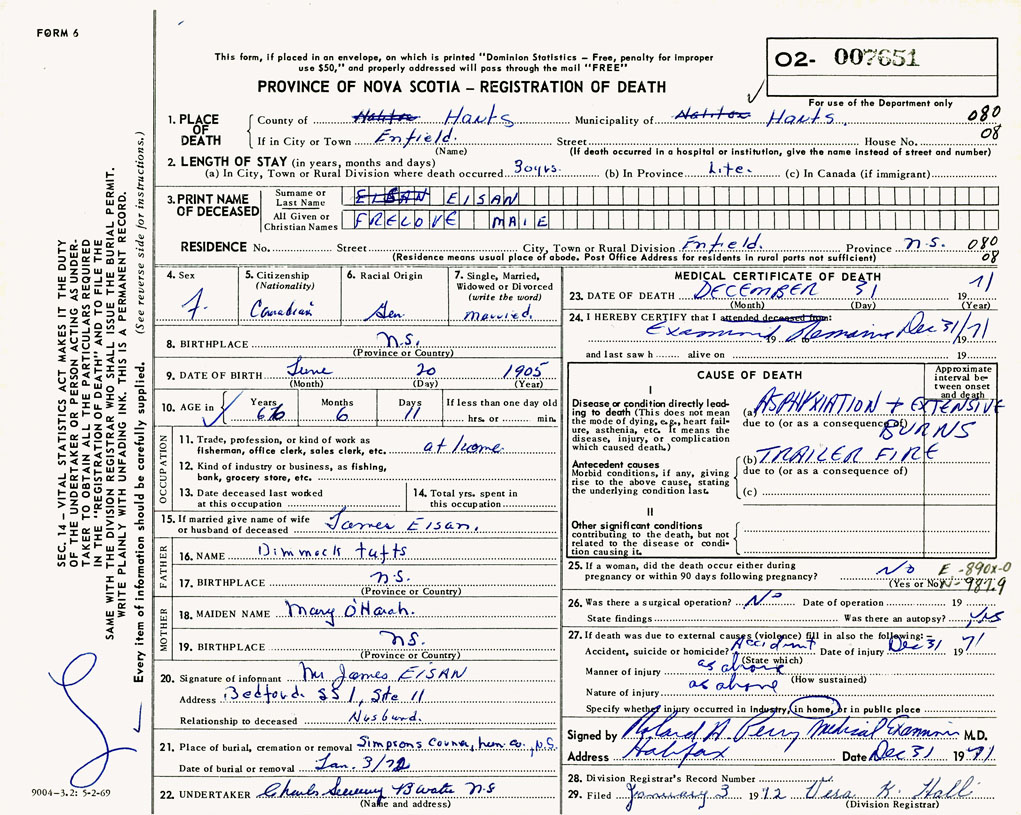 FORM 6
This form, if placed in an envelope, on which is printed "Dominion Statistics – Free, penalty for improper
use $50," and properly addressed will pass through the mail "FREE"
O2- 007651
PROVINCE OF NOVA SCOTIA – REGISTRATION OF DEATH
For use of the Department only
1. PLACE OF DEATH
County of Halifax Hants Municipality of Halifax Hants. 080
If in City or Town Enfield. Street House No. 08
(Name) (If death occurred in a hospital or institution, give the name instead of street and number)
2. LENGTH OF STAY (in years, months and days)
(a) In City, Town or Rural Division where death occurred 30yrs. (b) In Province Life. (c) In Canada (if immigrant)
3. PRINT NAME OF DECEASED
Surname or Last Name EISAN EISAN
All Given or Christian Names FRELOVE MAIE
RESIDENCE No. Street City, Town or Rural Division Enfield. Province N.S. 080
(Residence means usual place of abode. Post Office Address for residents in rural parts not sufficient) 08
4. Sex
f.
5. Citizenship
(Nationality)
Canadian
6. Racial Origin
Ger.
7. Single, Married,
Widowed or Divorced
(write the word)
Married.
8. BIRTHPLACE N.S.
(Province or Country)
9. DATE OF BIRTH June 20 1905
(Month) (Day) (Year)
10. AGE in Years Months Days If less than one day old
6 11 hrs. or min.
OCCUPATION
11. Trade, profession, or kind of work as
fisherman, office clerk, sales clerk, etc. at home
12. Kind of industry or business, as fishing,
bank, grocery store, etc.
13. Date deceased last worked
at this occupation
14. Total yrs. spent in
this occupation
15. If married give name of wife
or husband of deceased James Eisan.
FATHER
16. NAME Dimmock Tufts
17. BIRTHPLACE N.S.
(Province or Country)
MOTHER
18. MAIDEN NAME Mary O'Harah.
19. BIRTHPLACE N.S.
(Province or Country)
20. Signature of informant Mr James EISAN
Address Bedford. SS1, Site 11
Relationship to deceased Husband.
21. Place of burial, cremation or removal Simpsons N.S.
Date of burial or removal Jan. 3/72
22. UNDERTAKER N.S
(Name and address)
MEDICAL CERTIFICATE OF DEATH
23. DATE OF DEATH DECEMBER 31 19 71
(Month) (Day) (Year)
24. I HEREBY CERTIFY that I attended deceased from:
Examined Remains Dec 31/71
19 to 19
and last saw h alive on 19
CAUSE OF DEATH
Approximate
interval be-
tween onset
and death
I
Disease or condition directly lead-
ing to death (This does not mean
the mode of dying, e.g., heart fail-
ure, asthenia, etc. It means the
disease, injury, or complication
which caused death.)
(a) ASPHYXIATION + EXTENSIVE
due to (or as a consequence of) BURNS
Antecedent causes
Morbid conditions, if any, giving
rise to the above cause, stating
the underlying condition last.
(b) TRAILER FIRE
due to (or as a consequence of)
(c)
II
Other significant conditions
contributing to the death, but not
related to the disease or condi-
tion causing it.
25. If a woman, did the death occur either during
pregnancy or within 90 days following pregnancy? No
(Yes or No)
E -890X-0
N-987.9
26. Was there a surgical operation? No Date of operation 19
State findings Was there an autopsy? yes
27. If death was due to external causes (violence) fill in also the following:–
Accident, suicide or homicide? Accident Date of injury Dec 31 1971
(State which)
Manner of injury as above
(How sustained)
Nature of injury as above
Specify whether injury occurred in industry, in home, or in public place
Signed by Roland H. Perry Medical Examiner M.D.
Address Halifax Date Dec 31 1971
28. Division Registrar's Record Number
29. Filed January 3 1972 Vera K. Hall
(Division Registrar)
SEC. 14 – VITAL STATISTICS ACT MAKES IT THE DUTY
OF THE UNDERTAKER OR PERSON ACTING AS UNDER-
TAKER TO OBTAIN ALL THE PARTICULARS REQUIRED
IN THE "REGISTRATION OF DEATH" AND TO FILE THE
SAME WITH THE DIVISION REGISTRAR WHO SHALL ISSUE THE BURIAL PERMIT.
WRITE PLAINLY WITH UNFADING INK. THIS IS A PERMANENT RECORD.
Every item of information should be carefully supplied. (See reverse side for instructions.)
9004-3.2: 5-2-69